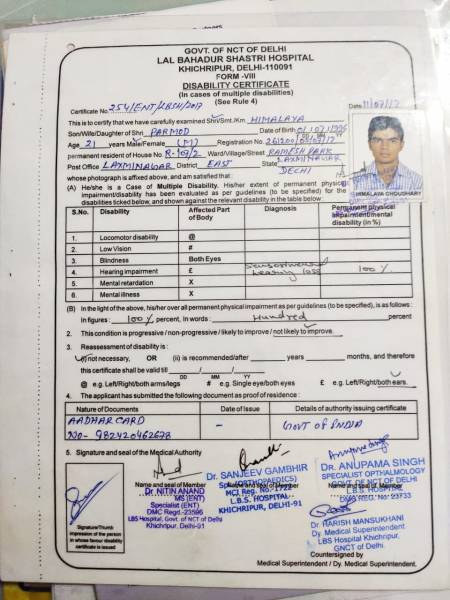 GOVT. OF NCT OF DELHI
LAL BAHADUR SHASTRI HOSPITAL
KHICHRIPUR, DELHI-110091
FORM-VIII
DISABILITY CERTIFICATE
(In cases of multiple disabilities)
(See Rule 4)
Certificate No. 254/ENT/LBSH/2017 Date 11/07/17
This is to certify that we have carefully examined Shri/Smt./Km. HIMALAYA
Son/Wife/Daughter of Shri PARMOD Date of Birth
Age 21 years Male/Female (M) Registration No.
permanent resident of House No. R-169/2 Ward/Village/Street RAMESH PARK
Post Office LAXMINAGAR District EAST State LAXMI NAGAR
DELHI
whose photograph is affixed above, and am satisfied that :
HIMALAYA CHOUDHARY
(A) He/she is a Case of Multiple Disability. His/her extent of permanent physical
impairment/disability has been evaluated as per guidelines (to be specified) for the
disabilities ticked below, and shown against the relevant disability in the table below :
S.No. Disability Affected Part of Body Diagnosis Permanent physical impairment/mental disability (in %)
1. Locomotor disability @
2. Low Vision #
3. Blindness Both Eyes
4. Hearing impairment £ Sensorineural hearing loss 100%
5. Mental retardation X
6. Mental illness X
(B) In the light of the above, his/her over all permanent physical impairment as per guidelines (to be specified), is as follows :
In figures : 100% percent, In words : Hundred percent
2. This condition is progressive / non-progressive / likely to improve / not likely to improve.
3. Reassessment of disability is :
(i) not necessary, OR (ii) is recommended/after years months, and therefore
this certificate shall be valid till / /
DD MM YY
@ e.g. Left/Right/both arms/legs # e.g. Single eye/both eyes £ e.g. Left/Right/both ears.
4. The applicant has submitted the following document as proof of residence :
Nature of Documents Date of Issue Details of authority issuing certificate
AADHAR CARD - GOVT OF INDIA
NO- 982420462678
5. Signature and seal of the Medical Authority
Name and seal of Member
Dr. NITIN ANAND
MS (ENT)
Specialist (ENT)
DMC Regd.-23596
LBS Hospital, Govt. of NCT of Delhi
Khichripur, Delhi-91
Dr. SANJEEV GAMBHIR
Specialist (ORTHOPAEDICS)
Name and seal of Member
MCI Reg. No.-1722
L.B.S. HOSPITAL
KHICHRIPUR, DELHI-91
Dr. ANUPAMA SINGH
SPECIALIST OPTHALMOLOGY
GOVT. OF NCT OF DELHI
L.B.S. HOSPITAL
Name and seal of Member
DMC REG. NO. 23733
Signature/Thumb
impression of the person
in whose favour disability
certificate is issued
Dr. HARISH MANSUKHANI
Dy. Medical Superintendent.
LBS Hospital Khichripur,
GNCT of Delhi.
Countersigned by
Medical Superintendent / Dy. Medical Superintendent.